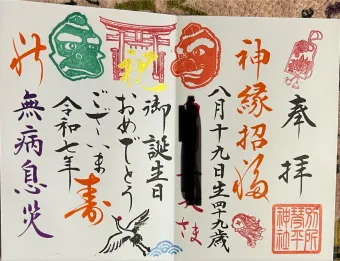 奉拝
神縁招福
八月十九日生四十九歳
さま
祝
御誕生日
おめでとう
ございま
寿
令和七年
無病息災
別所
琴平
神社